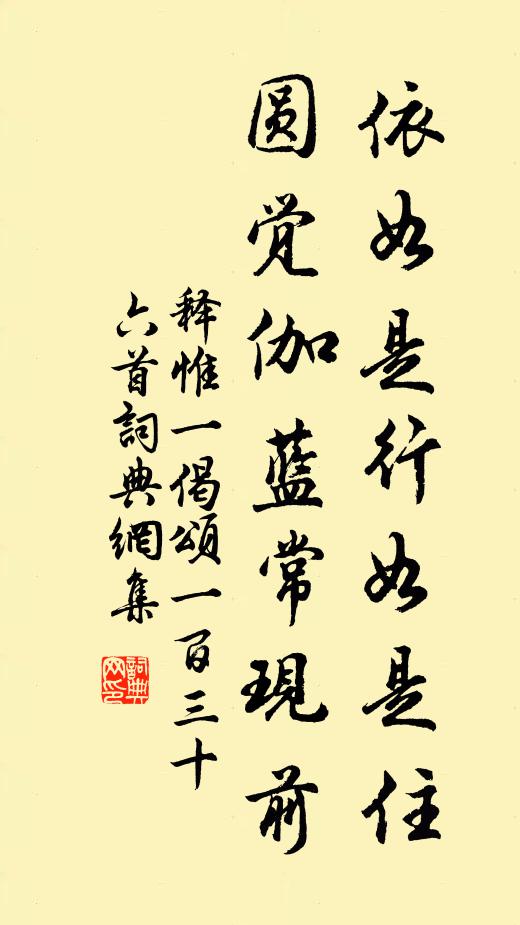 依如是行如是住
圆觉伽蓝常現前
释惟一偈頌一百三十
六首詞典網集
詞典
网印